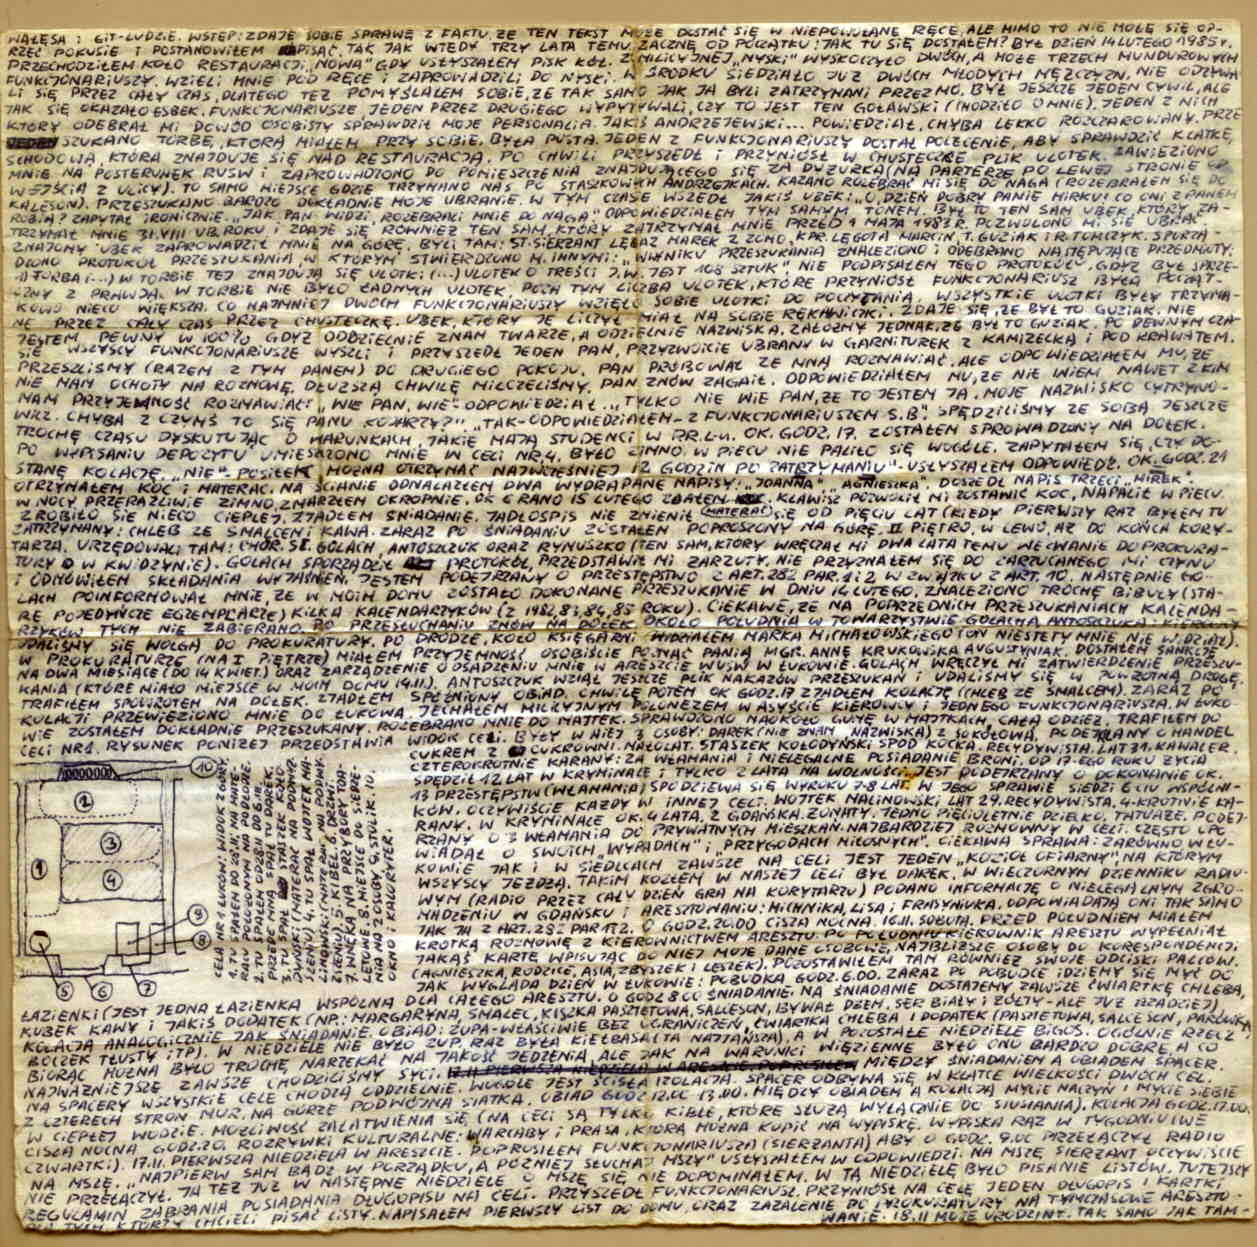 WAŁĘSA I GIT-LUDZIE. WSTĘP: ZDAJĘ SOBIE SPRAWĘ Z FAKTU, ŻE TEN TEKST MOŻE DOSTAĆ SIĘ W NIEPOWOŁANE RĘCE, ALE MIMO TO NIE MOGĘ SIĘ OP-
RZEĆ POKUSIE I POSTANOWIŁEM PISAĆ. TAK JAK WTEDY TRZY LATA TEMU, ZACZNĘ OD POCZĄTKU: JAK TU SIĘ DOSTAŁEM? BYŁ DZIEŃ 14 LUTEGO 1985 r.
PRZECHODZIŁEM KOŁO RESTAURACJI „NOWA" GDY USŁYSZAŁEM PISK KÓŁ. Z MILICYJNEJ „NYSKI" WYSKOCZYŁO DWÓCH, A MOŻE TRZECH MUNDUROWYCH
FUNKCJONARIUSZY. WZIELI MNIE POD RĘCE I ZAPROWADZILI DO NYSKI. W ŚRODKU SIEDZIAŁO JUŻ DWÓCH MŁODYCH MĘŻCZYZN. NIE ODZYWA-
LI SIĘ PRZEZ CAŁY CZAS, DLATEGO TEŻ POMYŚLAŁEM SOBIE, ŻE TAK SAMO JAK JA BYLI ZATRZYMANI PRZEZ MO. BYŁ JESZCZE JEDEN CYWIL, ALE
JAK SIĘ OKAZAŁO ESBEK. FUNKCJONARIUSZE JEDEN PRZEZ DRUGIEGO WYPYTYWALI, CZY TO JEST TEN GOŁAWSKI (CHODZIŁO O MNIE). JEDEN Z NICH
KTÓRY ODEBRAŁ MI DOWÓD OSOBISTY SPRAWDZIŁ MOJE PERSONALIA. JAKIŚ ANDRZEJEWSKI... POWIEDZIAŁ, CHYBA LEKKO ROZCZAROWANY. PRZE
SZUKANO TORBĘ, KTÓRĄ MIAŁEM PRZY SOBIE. BYŁA PUSTA. JEDEN Z FUNKCJONARIUSZY DOSTAŁ POLECENIE, ABY SPRAWDZIĆ KLATKĘ
SCHODOWĄ, KTÓRA ZNAJDUJE SIĘ NAD RESTAURACJĄ. PO CHWILI PRZYSZEDŁ I PRZYNIÓSŁ W CHUSTECZKĘ PLIK ULOTEK. ZAWIEZIONO
MNIE NA POSTERUNEK RUSW I ZAPROWADZONO DO POMIESZCZENIA ZNAJDUJĄCEGO SIĘ ZA DYŻURKĄ (NA PARTERZE PO LEWEJ STRONIE OD
WEJŚCIA Z ULICY). TO SAMO MIEJSCE GDZIE TRZYMANO NAS PO STASZKOWYCH ANDRZEJKACH. KAZANO ROZEBRAĆ MI SIĘ DO NAGA (ROZEBRAŁEM SIĘ DO
KALESON). PRZESZUKANO BARDZO DOKŁADNIE MOJE UBRANIE. W TYM CZASIE WSZEDŁ JAKIŚ UBEK: „O, DZIEŃ DOBRY PANIE MIRKU! CO ONI Z PANEM
ROBIĄ? ZAPYTAŁ IRONICZNIE. „JAK PAN WIDZI, ROZEBRALI MNIE DO NAGA" ODPOWIEDZIAŁEM TYM SAMYM TONEM. BYŁ TO TEN SAM UBEK, KTÓRY ZA-
TRZYMAŁ MNIE 31.VIII UB. ROKU I ZDAJE SIĘ RÓWNIEŻ TEN SAM, KTÓRY ZATRZYMAŁ MNIE PRZED 1 MAJA 1983 R. POZWOLONO MI SIĘ UBRAĆ.
ZNAJOMY UBEK ZAPROWADZIŁ MNIE NA GÓRĘ. BYLI TAM: ST. SIERŻANT MAREK Z ZOMO, KPR. LEGOTA MARCIN, T. GUZIAK I R. TOMCZYK. SPORZĄ-
DZONO PROTOKÓŁ PRZESZUKANIA W KTÓRYM STWIERDZONO M. INNYMI: „W WYNIKU PRZESZUKANIA ZNALEZIONO I ODEBRANO NASTĘPUJĄCE PRZEDMIOTY:
1) TORBA (...) W TORBIE TEJ ZNAJDUJĄ SIĘ ULOTKI (...) ULOTEK O TREŚCI J.W. JEST 108 SZTUK" NIE PODPISAŁEM TEGO PROTOKÓŁU, GDYŻ BYŁ SPRZE-
CZNY Z PRAWDĄ. W TORBIE NIE BYŁO ŻADNYCH ULOTEK, POZA TYM LICZBA ULOTEK, KTÓRE PRZYNIÓSŁ FUNKCJONARIUSZ BYŁA POCZĄT-
KOWO NIECO WIĘKSZA. CO NAJMNIEJ DWÓCH FUNKCJONARIUSZY WZIĘŁO SOBIE ULOTKI DO POCZYTANIA. WSZYSTKIE ULOTKI BYŁY TRZYMA-
NE PRZEZ CAŁY CZAS PRZEZ CHUSTECZKĘ. UBEK, KTÓRY JE LICZYŁ MIAŁ NA SOBIE RĘKAWICZKI. ZDAJE SIĘ, ŻE BYŁ TO GUZIAK. NIE
JESTEM PEWNY W 100% GDYŻ ODDZIELNIE ZNAM TWARZE, A ODZIELNIE NAZWISKA. ZAŁÓŻMY JEDNAK, ŻE BYŁ TO GUZIAK. PO PEWNYM CZA-
SIE WSZYSCY FUNKCJONARIUSZE WYSZLI I PRZYSZEDŁ JEDEN PAN, PRZYZWOICIE UBRANY W GARNITUREK Z KAMIZELKĄ I POD KRAWATEM.
PRZESZLIŚMY (RAZEM Z TYM PANEM) DO DRUGIEGO POKOJU. PAN PRÓBOWAŁ ZE MNĄ ROZMAWIAĆ, ALE ODPOWIEDZIAŁEM MU, ŻE
NIE MAM OCHOTY NA ROZMOWĘ. DŁUŻSZĄ CHWILĘ MILCZELIŚMY. PAN ZNÓW ZAGAIŁ. ODPOWIEDZIAŁEM MU, ŻE NIE WIEM NAWET Z KIM
MAM PRZYJEMNOŚĆ ROZMAWIAĆ. „WIE PAN, WIE" ODPOWIEDZIAŁ. „TYLKO NIE WIE PAN, ŻE TO JESTEM JA. MOJE NAZWISKO CYTRYNO-
WICZ. CHYBA Z CZYMŚ TO SIĘ PANU KOJARZY?" „TAK - ODPOWIEDZIAŁEM - Z FUNKCJONARIUSZEM S.B." SPĘDZILIŚMY ZE SOBĄ JESZCZE
TROCHĘ CZASU DYSKUTUJĄC O WARUNKACH, JAKIE MAJĄ STUDENCI W P.R.L-u. OK. GODZ. 17. ZOSTAŁEM SPROWADZONY NA DOŁEK.
PO WYPISANIU DEPOZYTU UMIESZCZONO MNIE W CELI NR 4. BYŁO ZIMNO. W PIECU NIE PALIŁO SIĘ WOGÓLE. ZAPYTAŁEM SIĘ, CZY DO-
STANĘ KOLACJĘ. „NIE" - POSIŁEK MOŻNA OTRZYMAĆ NAJWCZEŚNIEJ 12 GODZIN PO ZATRZYMANIU" - USŁYSZAŁEM ODPOWIEDŹ. OK. GODZ. 21
OTRZYMAŁEM KOC I MATERAC. NA ŚCIANIE ODNALAZŁEM DWA WYDRAPANE NAPISY: „JOANNA" „AGNIESZKA". DOSZEDŁ NAPIS TRZECI „MIREK".
W NOCY PRZERAŹLIWIE ZIMNO, ZMARZŁEM OKROPNIE. OK 6 RANO 15 LUTEGO ZDAŁEM KLAWISZ POZWOLIŁ MI ZOSTAWIĆ KOC, NAPALIŁ W PIECU.
ZROBIŁO SIĘ NIECO CIEPLEJ. ZJADŁEM ŚNIADANIE. JADŁOSPIS NIE ZMIENIŁ (MATERAC) SIĘ OD PIĘCIU LAT (KIEDY PIERWSZY RAZ BYŁEM TU
ZATRZYMANY: CHLEB ZE SMALCEM I KAWA. ZARAZ PO ŚNIADANIU ZOSTAŁEM POPROSZONY NA GÓRĘ. II PIĘTRO, W LEWO, AŻ DO KOŃCA KORY-
TARZA. URZĘDOWALI TAM: CHOR. SZ. GOLACH, ANTOSZCZUK ORAZ RYNUSZKO (TEN SAM, KTÓRY WRĘCZAŁ MI DWA LATA TEMU WEZWANIE DO PROKURA-
TURY W KWIDZYNIE). GOLACH SPORZĄDZIŁ PROTOKÓŁ, PRZEDSTAWIŁ MI ZARZUTY. NIE PRZYZNAŁEM SIĘ DO ZARZUCANEGO MI CZYNU
I ODMÓWIŁEM SKŁADANIA WYJAŚNIEŃ. JESTEM PODEJRZANY O PRZESTĘPSTWO Z ART. 282 PAR. 1 i 2 W ZWIĄZKU Z ART. 10. NASTĘPNIE GO-
LACH POINFORMOWAŁ MNIE, ŻE W MOIM DOMU ZOSTAŁO DOKONANE PRZESZUKANIE W DNIU 14 LUTEGO. ZNALEZIONO TROCHĘ BIBUŁY (STA-
RE POJEDYŃCZE EGZEMPLARZE) KILKA KALENDARZYKÓW (Z 1982, 83, 84, 85 ROKU). CIEKAWE, ŻE NA POPRZEDNICH PRZESZUKANIACH KALENDA-
RZYKÓW TYCH NIE ZABIERANO. PO PRZESŁUCHANIU ZNÓW NA DOŁEK. OKOŁO POŁUDNIA W TOWARZYSTWIE GOLACHA, ANTOSZCZUKA I KIEROWCY
UDALIŚMY SIĘ WOŁGĄ DO PROKURATURY. PO DRODZE, KOŁO KSIĘGARNI WIDZIAŁEM MARKA MICHAŁOWSKIEGO (ON NIESTETY MNIE NIE WIDZIAŁ).
W PROKURATURZE (NA I PIĘTRZE) MIAŁEM PRZYJEMNOŚĆ OSOBIŚCIE POZNAĆ PANIĄ MGR. ANNĘ KRUKOWSKĄ AUGUSTYNIAK. DOSTAŁEM SANKCJĘ
NA DWA MIESIĄCE (DO 14 KWIET.) ORAZ ZARZĄDZENIE O OSADZENIU MNIE W ARESZCIE WUSW W ŁUKOWIE. GOLACH WRĘCZYŁ MI ZATWIERDZENIE PRZESZU-
KANIA (KTÓRE MIAŁO MIEJSCE W MOIM DOMU 14.II.). ANTOSZCZUK WZIĄŁ JESZCZE PLIK NAKAZÓW PRZESZUKAŃ I UDALIŚMY SIĘ W POWROTNĄ DROGĘ.
TRAFIŁEM SPOWROTEM NA DOŁEK. ZJADŁEM SPÓŹNIONY OBIAD. CHWILĘ POTEM OK GODZ. 17 ZJADŁEM KOLACJĘ (CHLEB ZE SMALCEM). ZARAZ PO
KOLACJI PRZEWIEZIONO MNIE DO ŁUKOWA. JECHAŁEM MILICYJNYM POLONEZEM W ASYŚCIE KIEROWCY I JEDNEGO FUNKCJONARIUSZA. W ŁUKO-
WIE ZOSTAŁEM DOKŁADNIE PRZESZUKANY. ROZEBRANO MNIE DO MAJTEK. SPRAWDZONO NAOKOŁO GUMĘ W MAJTKACH, CAŁĄ ODZIEŻ. TRAFIŁEM DO
CELI NR 1. RYSUNEK PONIŻEJ PRZEDSTAWIA WIDOK CELI. BYŁY W NIEJ 3 OSOBY: DAREK (NIE ZNAM NAZWISKA) Z SOKOŁOWA, PODEJRZANY O HANDEL
CUKREM Z CUKROWNI. MAŁOLAT. STASZEK KOŁODYŃSKI SPOD KOCKA. RECYDYWISTA. LAT 31. KAWALER.
CZTEROKROTNIE KARANY: ZA WŁAMANIA I NIELEGALNE POSIADANIE BRONI. OD 17-EGO ROKU ŻYCIA
SPĘDZIŁ 12 LAT W KRYMINALE I TYLKO 2 LATA NA WOLNOŚCI. JEST PODEJRZANY O DOKONANIE OK.
13 PRZESTĘPSTW (WŁAMANIA) SPODZIEWA SIĘ WYROKU 7-8 LAT. W JEGO SPRAWIE SIEDZI 6CIU WSPÓLNI-
KÓW. OCZYWIŚCIE KAŻDY W INNEJ CELI. WOJTEK MALINOWSKI. LAT 29. RECYDYWISTA. 4-KROTNIE KA-
RANY. W KRYMINALE OK. 4 LATA. Z GDAŃSKA. ŻONATY. JEDNO PIĘCIOLETNIE DZIECKO. TATUAŻE. PODEJ-
RZANY O 3 WŁAMANIA DO PRYWATNYCH MIESZKAŃ. NAJBARDZIEJ ROZMOWNY W CELI. CZĘSTO OPO
WIADAŁ O SWOICH „WYPADACH" I „PRZYGODACH MIŁOSNYCH". CIEKAWA SPRAWA: ZARÓWNO W ŁU-
KOWIE JAK I W SIEDLCACH ZAWSZE NA CELI JEST JEDEN „KOZIOŁ OFIARNY" NA KTÓRYM
WSZYSCY JEŻDŻĄ. TAKIM KOZŁEM W NASZEJ CELI BYŁ DAREK. W WIECZORNYM DZIENNIKU RADIO-
WYM (RADIO PRZEZ CAŁY DZIEŃ GRA NA KORYTARZU) PODANO INFORMACJĘ O NIELEGALNYM ZGRO-
MADZENIU W GDAŃSKU I ARESZTOWANIU: MICHNIKA, LISA I FRASYNIUKA. ODPOWIADAJĄ ONI TAK SAMO
JAK JA Z ART. 282 PAR 1 I 2. O GODZ. 20.00 CISZA NOCNA. 16.II. SOBOTA. PRZED POŁUDNIEM MIAŁEM
KRÓTKĄ ROZMOWĘ Z KIEROWNICTWEM ARESZTU. PO POŁUDNIU KIEROWNIK ARESZTU WYPEŁNIAŁ
JAKĄŚ KARTĘ WPISUJĄC DO NIEJ MOJE DANE OSOBOWE, NAJBLIŻSZE OSOBY DO KORESPONDENCJI
(AGNIESZKA, RODZICE, ASIA, ZBYSZEK I LESZEK). POZOSTAWIŁEM TAM RÓWNIEŻ SWOJE ODCISKI PALCÓW.
JAK WYGLĄDA DZIEŃ W ŁUKOWIE: POBUDKA GODZ. 6.00. ZARAZ PO POBUDCE IDZIEMY SIĘ MYĆ DO
ŁAZIENKI (JEST JEDNA ŁAZIENKA WSPÓLNA DLA CAŁEGO ARESZTU. O GODZ 8.00 ŚNIADANIE. NA ŚNIADANIE DOSTAJEMY ZAWSZE ĆWIARTKĘ CHLEBA,
KUBEK KAWY I JAKIŚ DODATEK (NP.: MARGARYNA, SMALEC, KISZKA PASZTETOWA, SALCESON, BYWAŁ DŻEM, SER BIAŁY I ŻÓŁTY - ALE JUŻ RZADZIEJ)
KOLACJA ANALOGICZNIE JAK ŚNIADANIE. OBIAD: ZUPA - WŁAŚCIWIE BEZ OGRANICZEŃ, ĆWIARTKA CHLEBA I DODATEK (PASZTETOWA, SALCESON, PARÓWKA,
BOCZEK TŁUSTY ITP). W NIEDZIELE NIE BYŁO ZUP. RAZ BYŁA KIEŁBASA (TA NAJTAŃSZA), A W POZOSTAŁE NIEDZIELE BIGOS. OGÓLNIE RZECZ
BIORĄC MOŻNA BYŁO TROCHĘ NARZEKAĆ NA JAKOŚĆ JEDZENIA, ALE JAK NA WARUNKI WIĘZIENNE BYŁO ONO BARDZO DOBRE A CO
NAJWAŻNIEJSZE ZAWSZE CHODZILIŚMY SYCI. MIĘDZY ŚNIADANIEM A OBIADEM SPACER.
NA SPACERY WSZYSTKIE CELE CHODZĄ ODDZIELNIE. WOGÓLE JEST ŚCISŁA IZOLACJA. SPACER ODBYWA SIĘ W KLATCE WIELKOŚCI DWÓCH CEL.
Z CZTERECH STRON MUR, NA GÓRZE PODWÓJNA SIATKA. OBIAD GODZ 12.00 13.00. MIĘDZY OBIADEM A KOLACJĄ MYCIE NACZYŃ I MYCIE SIEBIE
W CIEPŁEJ WODZIE. MOŻLIWOŚĆ ZAŁATWIENIA SIĘ (NA CELI SĄ TYLKO KIBLE, KTÓRE SŁUŻĄ WYŁĄCZNIE DO SIUSIANIA). KOLACJA GODZ. 17.00.
CISZA NOCNA GODZ. 20. ROZRYWKI KULTURALNE: WARCABY I PRASA, KTÓRĄ MOŻNA KUPIĆ NA WYPISKĘ. WYPISKA RAZ W TYGODNIU (WE
CZWARTKI). 17.II. PIERWSZA NIEDZIELA W ARESZCIE. POPROSIŁEM FUNKCJONARIUSZA (SIERŻANTA) ABY O GODZ. 9.00 PRZEŁĄCZYŁ RADIO
NA MSZĘ. „NAJPIERW SAM BĄDŹ W PORZĄDKU, A PÓŹNIEJ SŁUCHAJ MSZY" USŁYSZAŁEM W ODPOWIEDZI. NA MSZĘ SIERŻANT OCZYWIŚCIE
NIE PRZEŁĄCZYŁ. JA TEŻ JUŻ W NASTĘPNE NIEDZIELE O MSZĘ SIĘ NIE DOPOMINAŁEM. W TĄ NIEDZIELĘ BYŁO PISANIE LISTÓW. TUTEJSZY
REGULAMIN ZABRANIA POSIADANIA DŁUGOPISU NA CELI. PRZYSZEDŁ FUNKCJONARIUSZ, PRZYNIÓSŁ NA CELĘ JEDEN DŁUGOPIS I KARTKI
DLA TYCH, KTÓRZY CHCIELI PISAĆ LISTY. NAPISAŁEM PIERWSZY LIST DO DOMU, ORAZ ZAŻALENIE DO PROKURATURY NA TYMCZASOWE ARESZTO-
WANIE. 18.II MOJE URODZINY. TAK SAMO JAK TAM-
1
2
3
4
5
6
7
8
9
10
CELA NR 1 ŁUKÓW: WIDOK Z GÓRY.
1. TU SPAŁEM DO 28.II. NA MATE-
RACU POŁOŻONYM NA PODŁODZE.
2. TU SPAŁEM OD 28.II DO 6.III.
PRZEDE MNĄ SPAŁ TU DAREK.
3. TU SPAŁ STASZEK KOŁO-
DYŃSKI (MATERAC NA PODWYŻ-
SZENIU) 4. TU SPAŁ WOJTEK MA-
LINOWSKI (MATERAC NA PODWY-
ŻSZENIU). 5. KIBEL. 6. DRZWI.
7. WNĘKA NA PRZYBORY TOA-
LETOWE. 8. MIEJSCE DO SIEDZE-
NIA NA 2 OSOBY. 9. STOLIK. 10.
OKNO I KALORYFER.